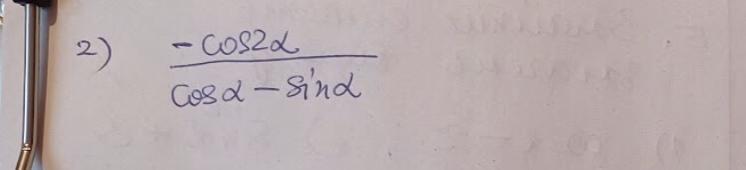 2) -cos2α
cosα - sinα